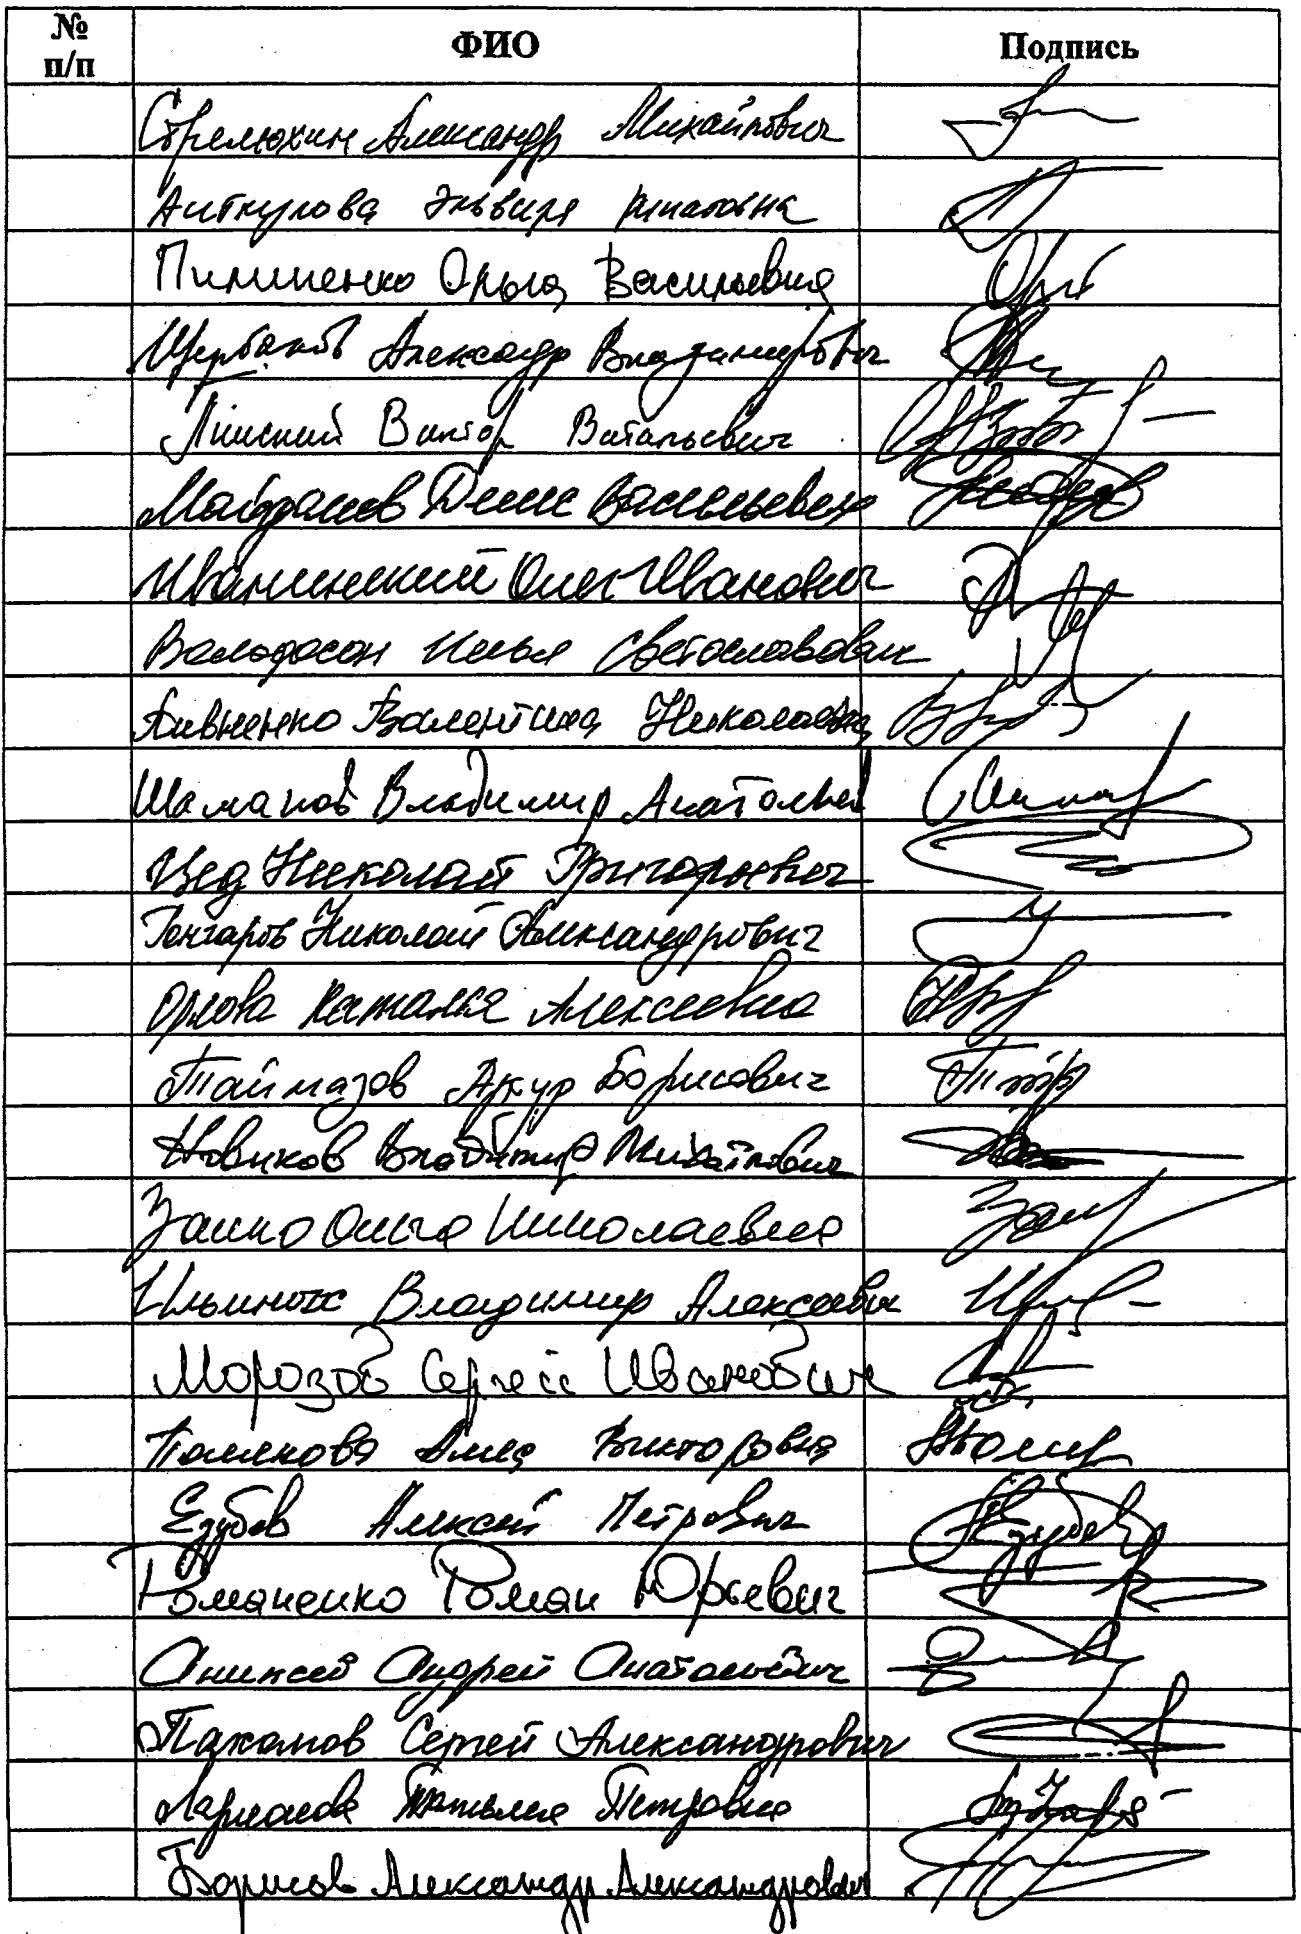 № п/п ФИО Подпись
Стрелюхин Александр Михайлович
Аиткулова Эльвира Ринатовна
Пилипенко Ольга Васильевна
Щербаков Александр Владимирович
Пинский Виктор Витальевич
Майданов Денис Васильевич
Иванинский Олег Иванович
Вольфсон Илья Светославович
Пивненко Валентина Николаевна
Шаманов Владимир Анатольев
Цед Николай Григорьевич
Гончаров Николай Александрович
Орлова Наталья Алексеевна
Таймазов Артур Борисович
Новиков Владимир Михайлович
Занко Ольга Николаевна
Ильиных Владимир Алексеевич
Морозов Сергей Иванович
Полякова Алла Викторовна
Езубов Алексей Петрович
Романенко Роман Юрьевич
Аникеев Андрей Анатольевич
Пахомов Сергей Александрович
Ларионова Татьяна Петровна
Борисов Александр Александрович